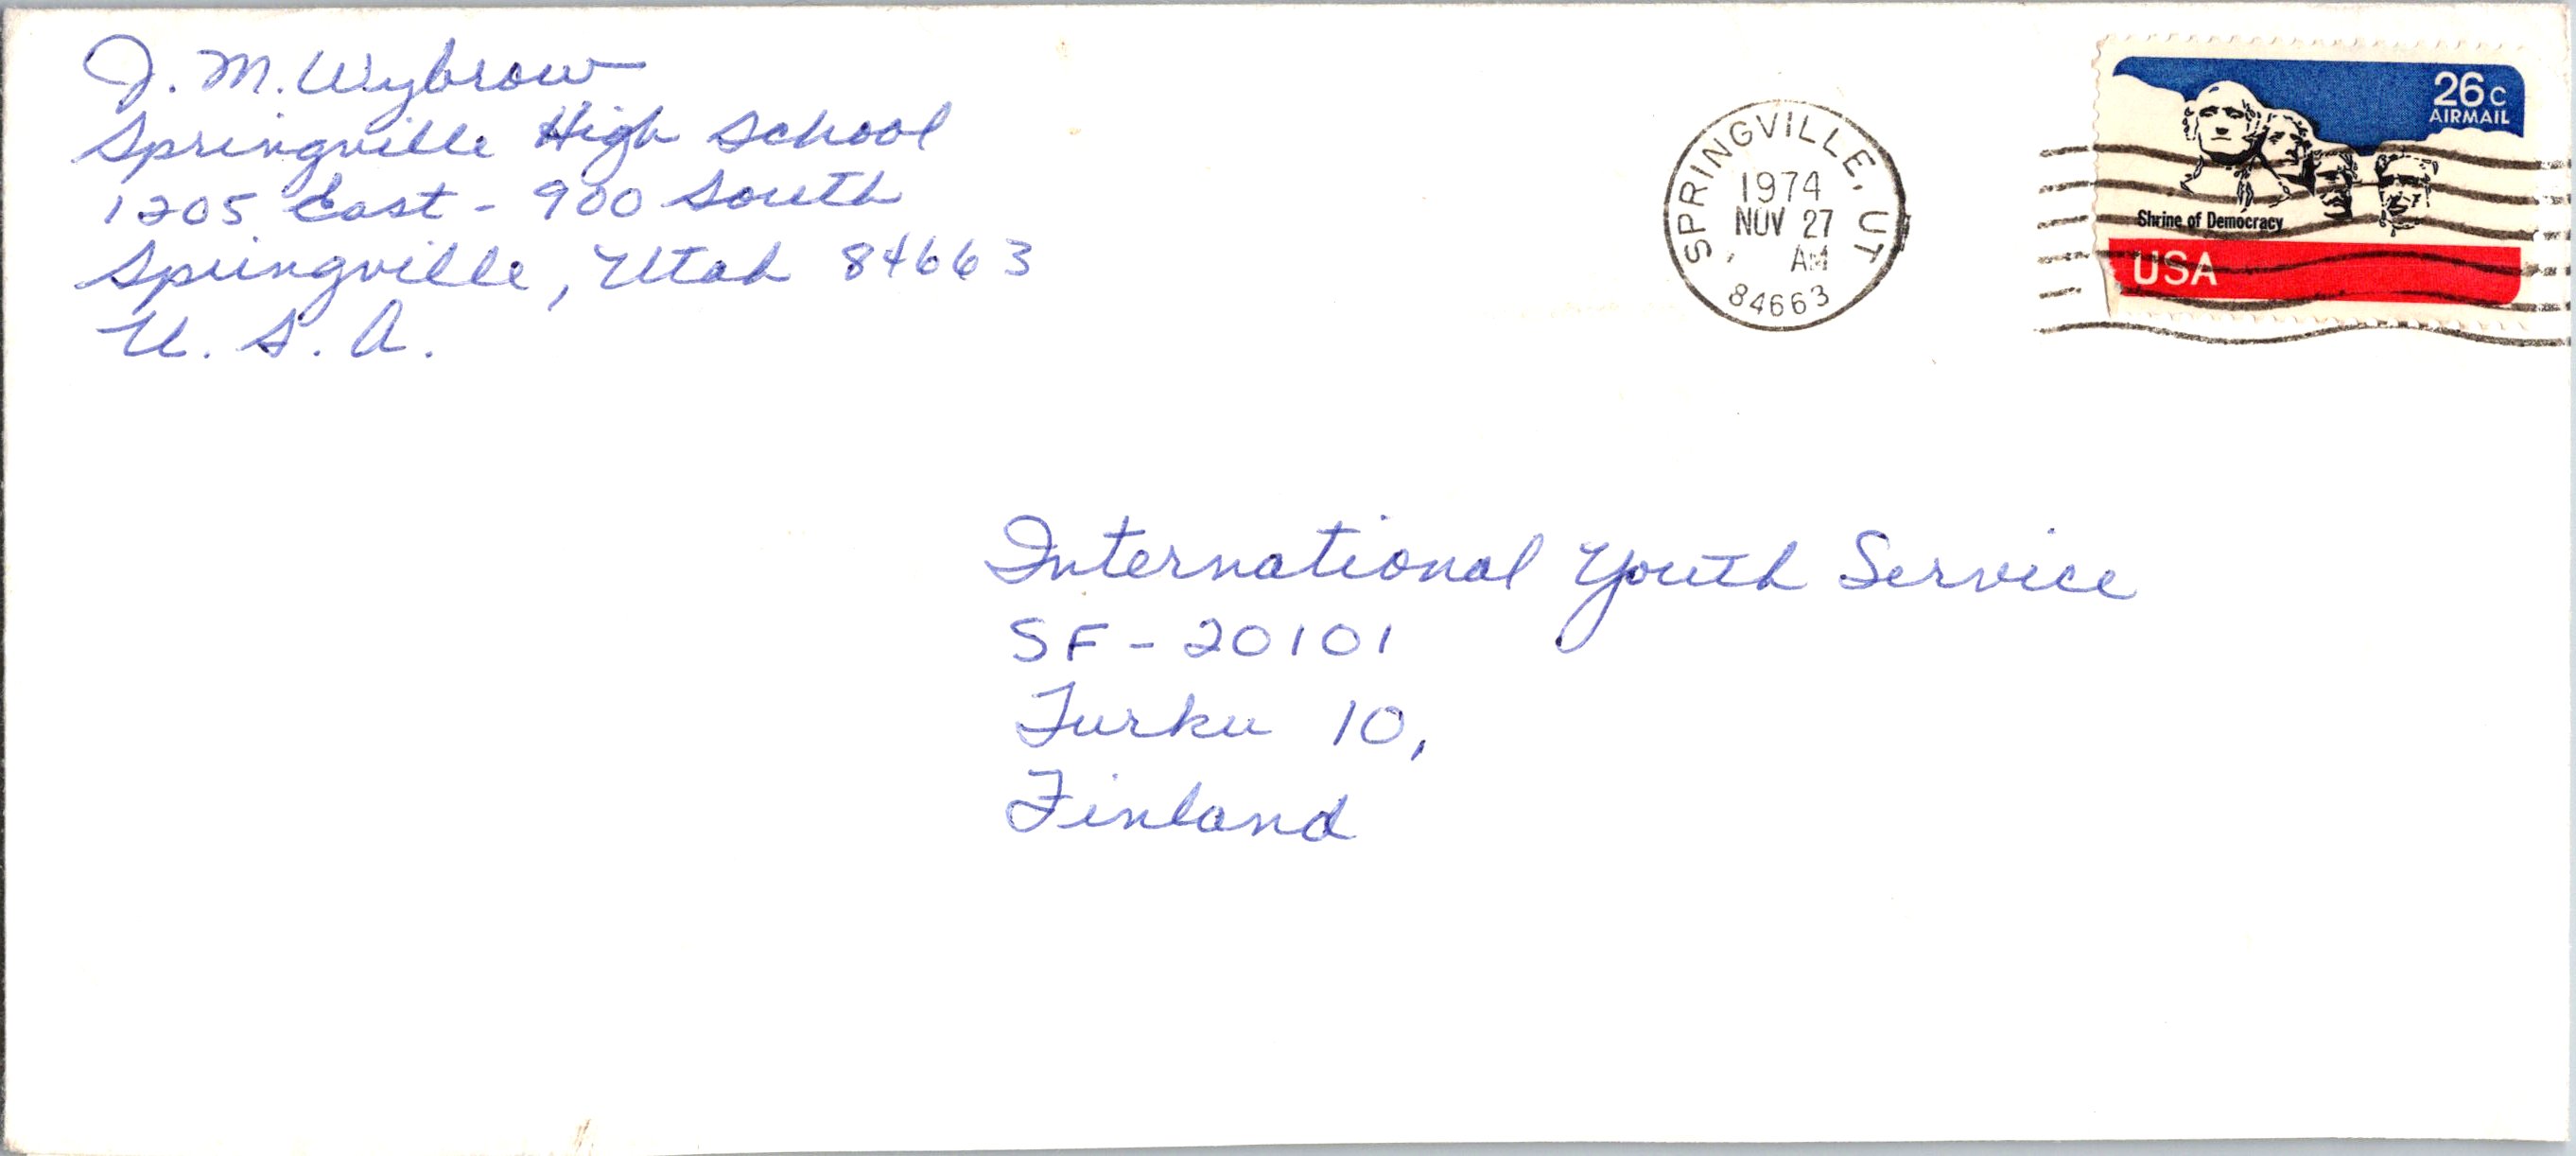 J. M. Wybrow
Springville High School
1205 East - 900 South
Springville, Utah 84663
U. S. A.
SPRINGVILLE, UT
1974
NOV 27
AM
84663
26c
AIRMAIL
Shrine of Democracy
USA
International Youth Service
SF - 20101
Turku 10,
Finland